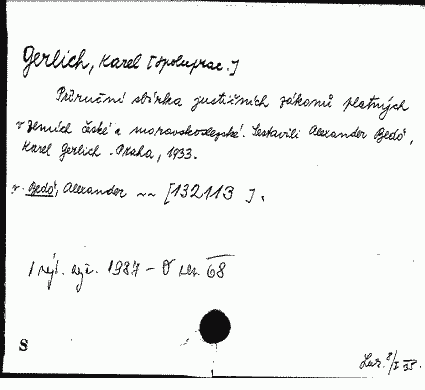 Gerlich, Karel [spoluprac.]
Příruční sbírka justičních zákonů platných
v zemích České a moravskoslezské. Sestavili Alexander Bedó,
Karel Gerlich. Praha, 1933.
v. Bedó, Alexander ~~ [132113].
1987 - 68
S